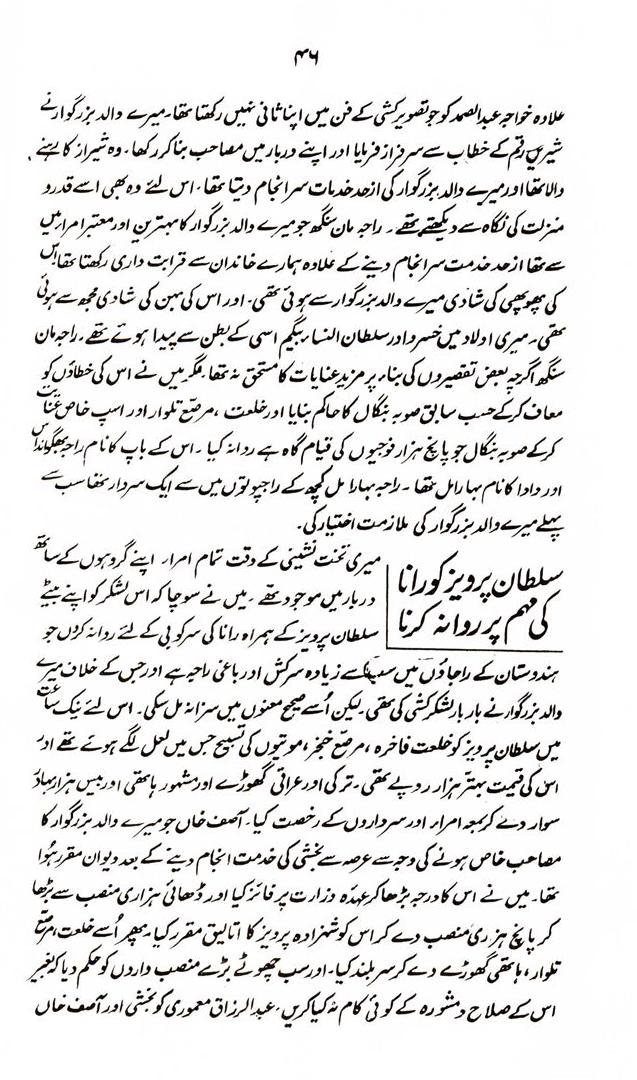 ۴۶
علاوہ خواجہ عبدالصمد کو جو تصویر کشی کے فن میں اپنا ثانی نہیں رکھتا تھا۔ میرے والد بزرگوار نے
شیریں رقم کے خطاب سے سرفراز فرمایا اور اپنے دربار میں مصاحب بنا کر رکھا۔ وہ شیراز کا رہنے
والا تھا اور میرے والد بزرگوار کی ازحد خدمات سرانجام دیتا تھا۔ اس لئے وہ بھی اسے قدر و
منزلت کی نگاہ سے دیکھتے تھے۔ راجہ مان سنگھ جو میرے والد بزرگوار کا بہترین اور معتبر امراء میں
سے تھا ازحد خدمت سرانجام دینے کے علاوہ ہمارے خاندان سے قرابت داری رکھتا تھا۔ اس
کی پھوپھی کی شادی میرے والد بزرگوار سے ہوئی تھی۔ اور اس کی بہن کی شادی مجھ سے ہوئی
تھی۔ میری اولاد میں خسرو اور سلطان النسا بیگم اسی کے بطن سے پیدا ہوئے تھے۔ راجہ مان
سنگھ اگرچہ بعض تقصیروں کی بناء پر مزید عنایات کا مستحق نہ تھا۔ مگر میں نے اس کی خطاؤں کو
معاف کر کے حسب سابق صوبہ بنگال کا حاکم بنایا اور خلعت، مرصع تلوار اور اسپ خاص عنایت
کر کے صوبہ بنگال جو پانچ ہزار فوجیوں کی قیام گاہ ہے روانہ کیا۔ اس کے باپ کا نام راجہ بھگوانداس
اور دادا کا نام بہارامل تھا۔ راجہ بہارا مل کچھ کے راجپوتوں میں سے ایک سردار تھا سب سے
پہلے میرے والد بزرگوار کی ملازمت اختیار کی۔
سلطان پرویز کو رانا
کی مہم پر روانہ کرنا
میری تخت نشینی کے وقت تمام امراء اپنے گروہوں کے ساتھ
دربار میں موجود تھے۔ میں نے سوچا کہ اس لشکر کو اپنے بیٹے
سلطان پرویز کے ہمراہ رانا کی سرکوبی کے لئے روانہ کروں جو
ہندوستان کے راجاؤں میں سب سے زیادہ سرکش اور باغی راجہ ہے اور جس کے خلاف میرے
والد بزرگوار نے بار بار لشکر کشی کی تھی۔ لیکن اُسے صحیح معنوں میں سزا نہ مل سکی۔ اس لئے نیک ساعت
میں سلطان پرویز کو خلعت فاخرہ، مرصع خنجر، موتیوں کی تسبیح جس میں لعل لگے ہوئے تھے اور
اس کی قیمت بہتر ہزار روپے تھی۔ ترکی اور عراقی گھوڑے اور مشہور ہاتھی اور بیس ہزار بہادر
سوار دے کر بمعہ امراء اور سرداروں کے رخصت کیا۔ آصف خاں جو میرے والد بزرگوار کا
مصاحب خاص ہونے کی وجہ سے عرصہ سے بخشی کی خدمت انجام دینے کے بعد دیوان مقرر ہوا
تھا۔ میں نے اس کا درجہ بڑھا کر عہدہ وزارت پر فائز کیا اور ڈھائی ہزاری منصب سے بڑھا
کر پانچ ہزاری منصب دے کر اس کو شہزادہ پرویز کا اتالیق مقرر کیا۔ پھر اُسے خلعت، مرصع
تلوار، ہاتھی گھوڑے دے کر سربلند کیا۔ اور سب چھوٹے بڑے منصب داروں کو حکم دیا کہ بغیر
اس کے صلاح و مشورہ کے کوئی کام نہ کیا کریں۔ عبدالرزاق معموری کو بخشی اور آصف خاں